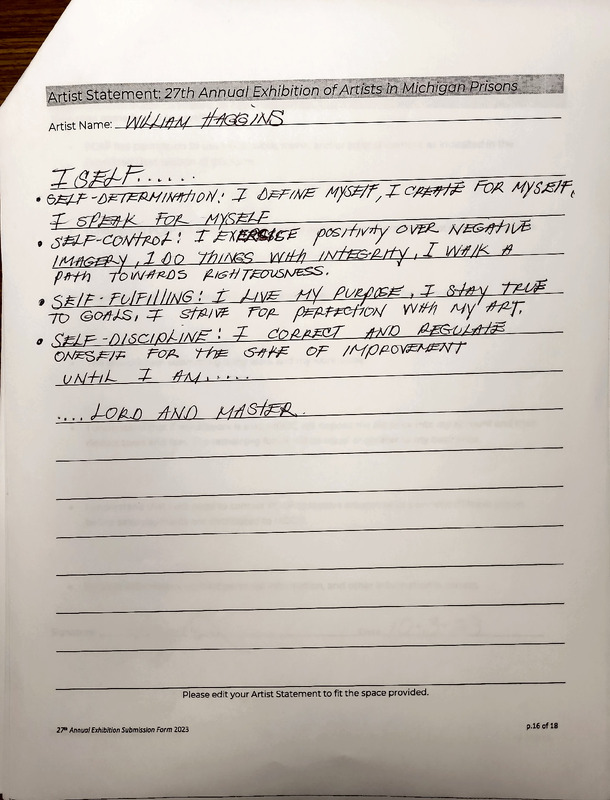 Artist Statement: 27th Annual Exhibition of Artists in Michigan Prisons
Artist Name: WILLIAM HAGGINS
I SELF......
• SELF-DETERMINATION: I DEFINE MYSELF, I CREATE FOR MYSELF,
I SPEAK FOR MYSELF
• SELF-CONTROL: I EXERCISE POSITIVITY OVER NEGATIVE
IMAGERY, I DO THINGS WITH INTEGRITY, I WALK A
PATH TOWARDS RIGHTEOUSNESS.
• SELF-FULFILLING: I LIVE MY PURPOSE, I STAY TRUE
TO GOALS, I STRIVE FOR PERFECTION WITH MY ART.
• SELF-DISCIPLINE: I CORRECT AND REGULATE
ONESELF FOR THE SAKE OF IMPROVEMENT
UNTIL I AM.....
.... LORD AND MASTER.
Please edit your Artist Statement to fit the space provided.
27th Annual Exhibition Submission Form 2023
p.16 of 18